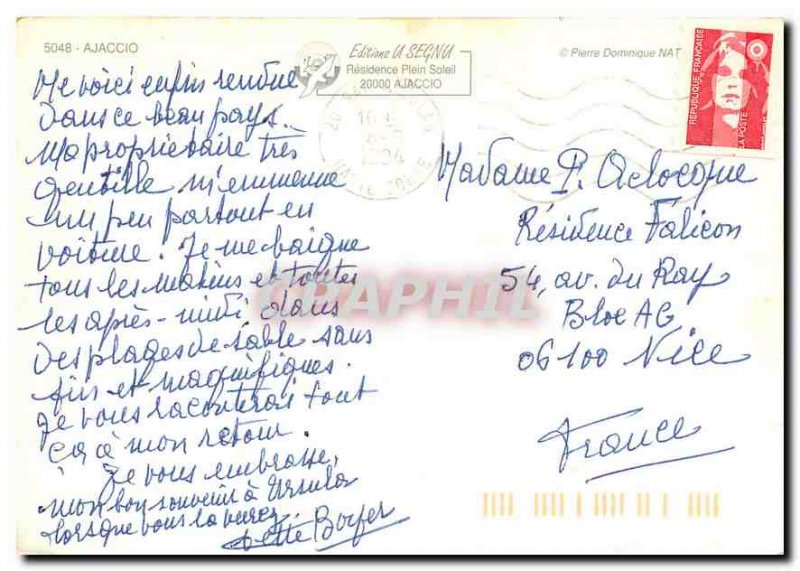 5048 - AJACCIO
Editions U SEGNU
Résidence Plein Soleil
20000 AJACCIO
© Pierre Dominique NAT
REPUBLIQUE FRANÇAISE
LA POSTE
Me voici enfin rendue
dans ce beau pays.
Ma propriétaire très
gentille m'emmène
un peu partout en
voiture. Je me baigne
tous les matins et toutes
les après-midi dans
des plages de sable sans
fin et magnifiques.
Je vous raconterai tout
ça à mon retour.
Je vous embrasse,
mon bon souvenir à Ursula
lorsque vous la verrez
Boyer
Madame P. Aclocque
Résidence Falicon
54, av. du Ray
Bloc AG
06100 Nice
France
GRAPHIL